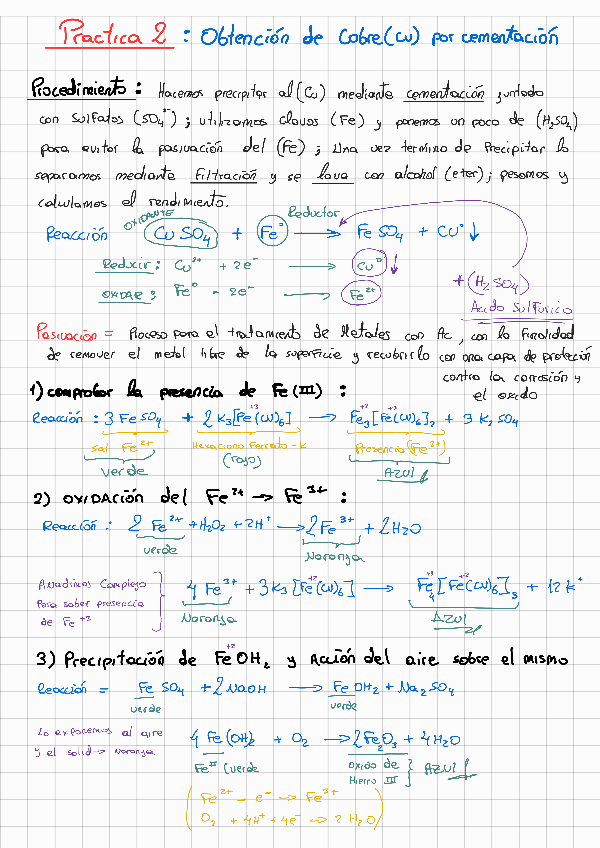 Practica 2 : Obtención de Cobre (Cu) por cementación
Procedimiento : Hacemos precipitar al (Cu) mediante cementación juntado
con Sulfatos (SO₄²⁻) ; utilizamos clavos (Fe) y ponemos un poco de (H₂SO₄)
para evitar la pasivación del (Fe) ; Una vez termino de Precipitar lo
separamos mediante Filtración y se lava con alcohol (eter) ; pesamos y
calculamos el rendimiento.
OXIDANTE Reductor
Reacción CuSO₄ + Fe⁰ → FeSO₄ + Cu⁰ ↓
Reducir : Cu²⁺ + 2e⁻ → Cu⁰ ↓
OXIDAR : Fe⁰ - 2e⁻ → Fe²⁺
+ (H₂SO₄)
Acido Sulfurico
Pasivación = Proceso para el tratamiento de Metales con Ac, con la finalidad
de remover el metal libre de la superficie y recubrirlo con una capa de protección
contra la corrosión y
el oxido
1) comprobar la presencia de Fe (III) :
Reacción : 3 FeSO₄ + 2 K₃[Fe⁺³(CN)₆] → Fe₃⁺²[Fe⁺³(CN)₆]₂ + 3 K₂SO₄
sal Fe²⁺ Hexaciano Ferrato - K Presencia (Fe²⁺)
verde (rojo) AZUL
2) OXIDACIÓN del Fe²⁺ → Fe³⁺ :
Reacción : 2 Fe²⁺ + H₂O₂ + 2H⁺ → 2 Fe³⁺ + 2H₂O
verde Naranja
Añadimos Complejo
Para saber presencia
de Fe⁺³
4 Fe³⁺ + 3K₃[Fe⁺²(CN)₆] → Fe₄⁺³[Fe⁺²(CN)₆]₃ + 12K⁺
Naranja AZUL
3) Precipitación de Fe⁺²OH₂ y Acción del aire sobre el mismo
Reacción = FeSO₄ + 2NaOH → FeOH₂ + Na₂SO₄
verde verde
Lo exponemos al aire
y el solid → Naranja
4 Fe(OH)₂ + O₂ → 2Fe₂O₃ + 4H₂O
Fe II (verde OXIDO de
Hierro III } AZUL
( Fe²⁺ - e⁻ → Fe³⁺
O₂ + 4H⁺ + 4e⁻ → 2H₂O )